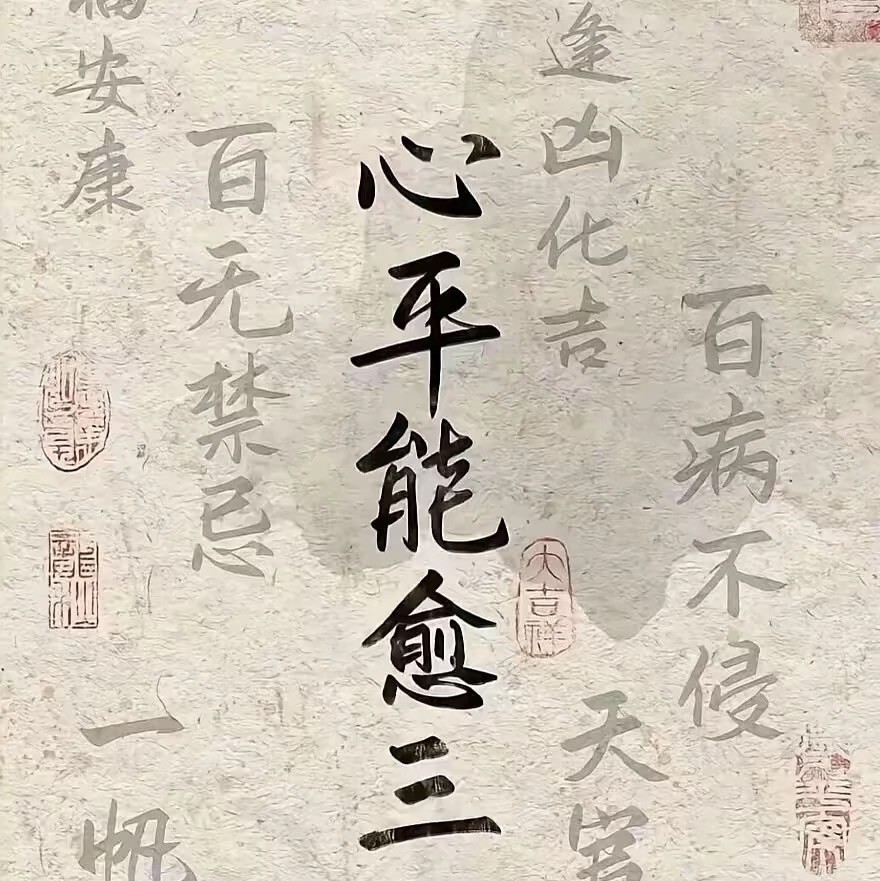 百病不侵
逢凶化吉
天官
大吉祥
心平能愈三
百无禁忌
福安康
一帆